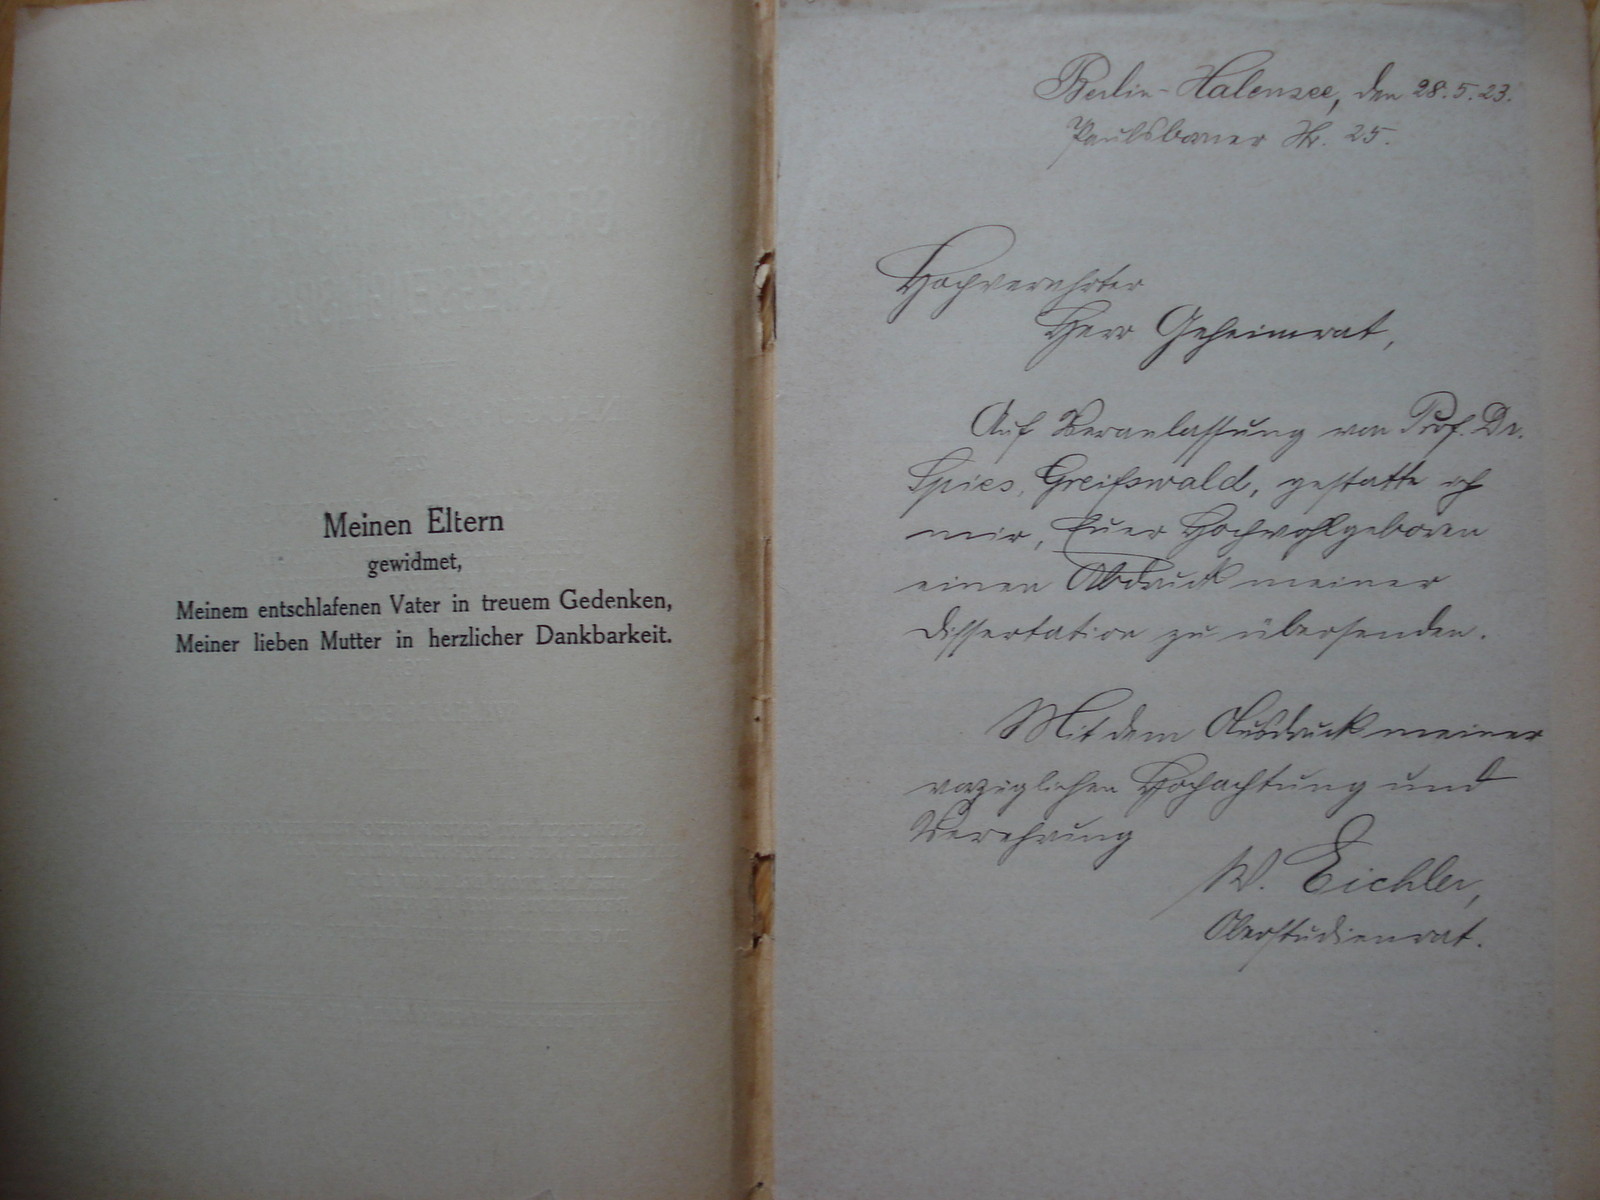 Meinen Eltern
gewidmet,
Meinem entschlafenen Vater in treuem Gedenken,
Meiner lieben Mutter in herzlicher Dankbarkeit.
Berlin-Halensee, den 28.5.23.
Paulsborner Str. 25.
Hochverehrter
Herr Geheimrat,
Auf Veranlassung von Prof. Dr.
Spies, Greifswald, gestatte ich
mir, Euer Hochwohlgeboren
einen Abdruck meiner
Dissertation zu übersenden.
Mit dem Ausdruck meiner
vorzüglichen Hochachtung und
Verehrung
W. Eichler,
Oberstudienrat.